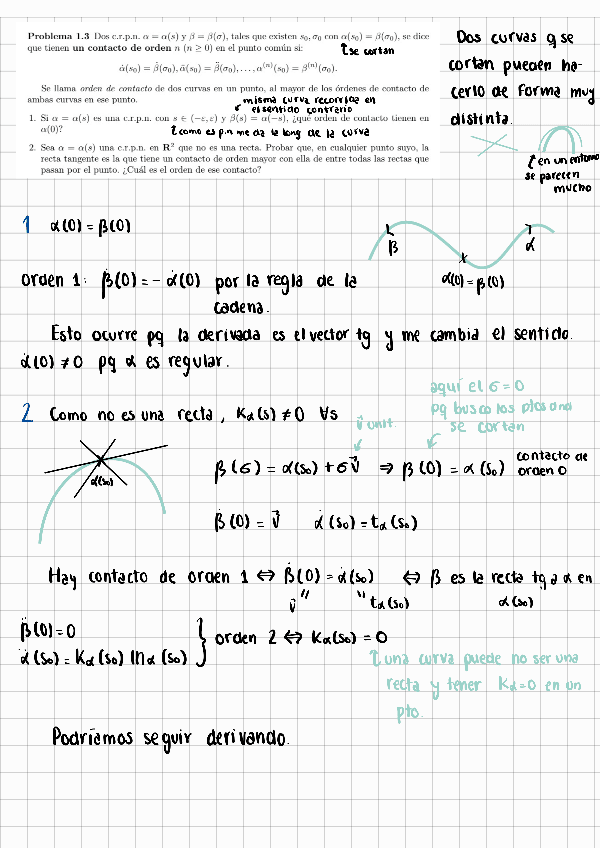 Problema 1.3 Dos c.r.p.n. α = α(s) y β = β(σ), tales que existen s₀, σ₀ con α(s₀) = β(σ₀), se dice
que tienen un contacto de orden n (n ≥ 0) en el punto común si:
↑ se cortan
α̇(s₀) = β̇(σ₀), α̈(s₀) = β̈(σ₀), . . . , α⁽ⁿ⁾(s₀) = β⁽ⁿ⁾(σ₀).
Se llama orden de contacto de dos curvas en un punto, al mayor de los órdenes de contacto de
ambas curvas en ese punto.
misma curva recorrida en
el sentido contrario
1. Si α = α(s) es una c.r.p.n. con s ∈ (−ε, ε) y β(s) = α(−s), ¿qué orden de contacto tienen en
α(0)?
↑ como es p.n me da la long de la curva
2. Sea α = α(s) una c.r.p.n. en R² que no es una recta. Probar que, en cualquier punto suyo, la
recta tangente es la que tiene un contacto de orden mayor con ella de entre todas las rectas que
pasan por el punto. ¿Cuál es el orden de ese contacto?
Dos curvas q se
cortan pueden ha-
cerlo de forma muy
distinta.
↑ en un entorno
se parecen
mucho
1 α(0) = β(0)
β
α
α(0) = β(0)
orden 1: β̇(0) = − α̇(0) por la regla de la
cadena.
Esto ocurre pq la derivada es el vector tg y me cambia el sentido.
α̇(0) ≠ 0 pq α es regular.
2 Como no es una recta, Kα(s) ≠ 0 ∀s
aquí el σ = 0
pq busco los ptos dnd
se cortan
v⃗ unit.
α(s₀)
β(σ) = α(s₀) + σv⃗ ⇒ β(0) = α(s₀) contacto de
orden 0
β̇(0) = v⃗ α̇(s₀) = tα(s₀)
Hay contacto de orden 1 ⇔ β̇(0) = α̇(s₀) ⇔ β es la recta tg a α en
v⃗ " " tα(s₀) α(s₀)
β̈(0) = 0
α̈(s₀) = Kα(s₀) nα(s₀) } orden 2 ⇔ Kα(s₀) = 0
↑ una curva puede no ser una
recta y tener Kα = 0 en un
pto.
Podríamos seguir derivando.